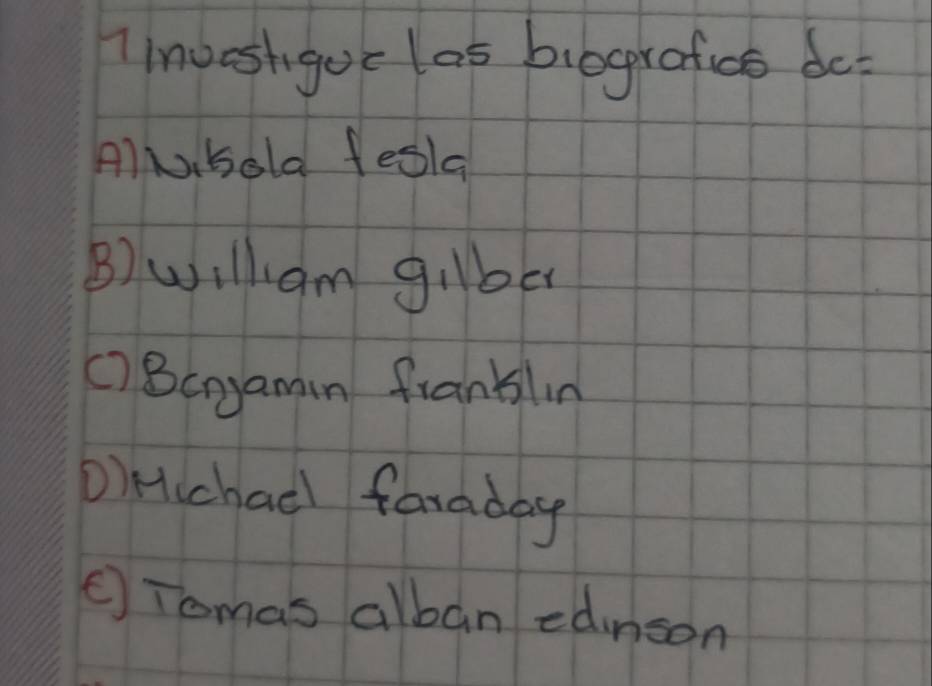 1 investigue las biografias de=
A) Nikola tesla
B) william gilber
C) Benjamin franklin
D) Michael faraday
E) Tomas alban edinson